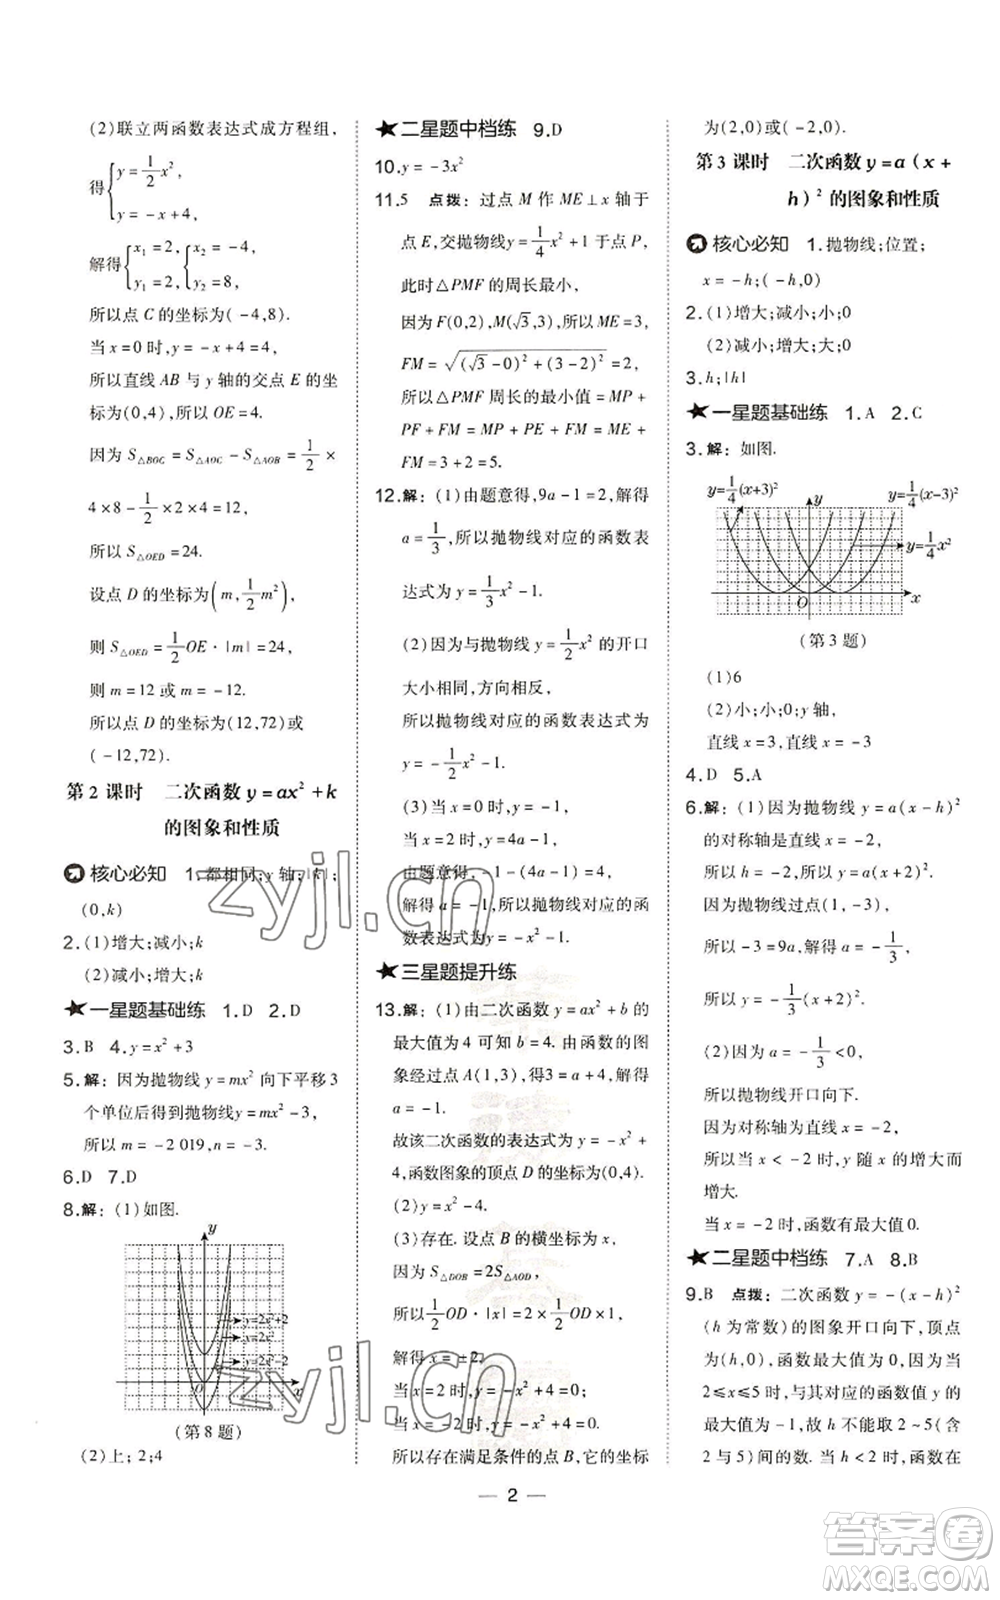 (2)联立两函数表达式成方程组,
得{y=1/2x²,
y=-x+4,
解得{x₁=2, {x₂=-4,
y₁=2, y₂=8,
所以点 C 的坐标为(-4,8).
当 x=0 时,y=-x+4=4,
所以直线 AB 与 y 轴的交点 E 的坐
标为(0,4),所以 OE=4.
因为 S△BOC=S△AOC-S△AOB=1/2×
4×8-1/2×2×4=12,
所以 S△OED=24.
设点 D 的坐标为(m,1/2m²),
则 S△OED=1/2OE·|m|=24,
则 m=12 或 m=-12.
所以点 D 的坐标为(12,72)或
(-12,72).
第 2 课时 二次函数 y=ax²+k
的图象和性质
核心必知 1.都相同;y 轴;|k|;
(0,k)
2.(1)增大;减小;k
(2)减小;增大;k
★一星题基础练 1.D 2.D
3.B 4.y=x²+3
5.解:因为抛物线 y=mx² 向下平移 3
个单位后得到抛物线 y=mx²-3,
所以 m=-2 019,n=-3.
6.D 7.D
8.解:(1)如图.
y
y=2x²+2
y=2x²
y=2x²-2
O x
(第 8 题)
(2)上;2;4
★二星题中档练 9.D
10.y=-3x²
11.5 点拨:过点 M 作 ME⊥x 轴于
点 E,交抛物线y=1/4x²+1于点 P,
此时△PMF 的周长最小,
因为 F(0,2),M(√3,3),所以 ME=3,
FM=√((√3-0)²+(3-2)²)=2,
所以△PMF 周长的最小值=MP+
PF+FM=MP+PE+FM=ME+
FM=3+2=5.
12.解:(1)由题意得,9a-1=2,解得
a=1/3,所以抛物线对应的函数表
达式为 y=1/3x²-1.
(2)因为与抛物线 y=1/2x² 的开口
大小相同,方向相反,
所以抛物线对应的函数表达式为
y=-1/2x²-1.
(3)当 x=0 时,y=-1,
当 x=2 时,y=4a-1,
由题意得,-1-(4a-1)=4,
解得 a=-1,所以抛物线对应的函
数表达式为y=-x²-1.
★三星题提升练
13.解:(1)由二次函数 y=ax²+b 的
最大值为 4 可知 b=4.由函数的图
象经过点 A(1,3),得3=a+4,解得
a=-1.
故该二次函数的表达式为 y=-x²+
4,函数图象的顶点 D 的坐标为(0,4).
(2)y=x²-4.
(3)存在.设点 B 的横坐标为 x,
因为 S△DOB=2S△AOD,
所以1/2OD·|x|=2×1/2OD×1,
解得 x=±2,
当 x=2 时,y=-x²+4=0;
当 x=-2 时,y=-x²+4=0.
所以存在满足条件的点 B,它的坐标
为(2,0)或(-2,0).
第 3 课时 二次函数 y=a(x+
h)²的图象和性质
核心必知 1.抛物线;位置;
x=-h;(-h,0)
2.(1)增大;减小;小;0
(2)减小;增大;大;0
3.h;|h|
★一星题基础练 1.A 2.C
3.解:如图.
y=1/4(x+3)² y y=1/4(x-3)²
y=1/4x²
O x
(第 3 题)
(1)6
(2)小;小;0;y 轴,
直线 x=3,直线 x=-3
4.D 5.A
6.解:(1)因为抛物线 y=a(x-h)²
的对称轴是直线 x=-2,
所以 h=-2,所以 y=a(x+2)².
因为抛物线过点(1,-3),
所以-3=9a,解得 a=-1/3.
所以 y=-1/3(x+2)².
(2)因为 a=-1/3<0,
所以抛物线开口向下.
因为对称轴为直线 x=-2,
所以当 x<-2 时,y 随 x 的增大而
增大.
当 x=-2 时,函数有最大值 0.
★二星题中档练 7.A 8.B
9.B 点拨:二次函数 y=-(x-h)²
(h 为常数)的图象开口向下,顶点
为(h,0),函数最大值为 0,因为当
2≤x≤5 时,与其对应的函数值 y 的
最大值为-1,故 h 不能取 2~5(含
2 与 5)间的数.当 h<2 时,函数在
— 2 —
zyjl.cn
zyjl.cn
答案圈
MXQE.COM